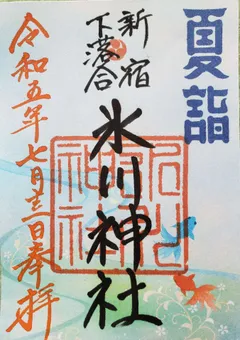 夏詣
新宿
下落合
氷川神社
令和五年七月三十一日奉拝